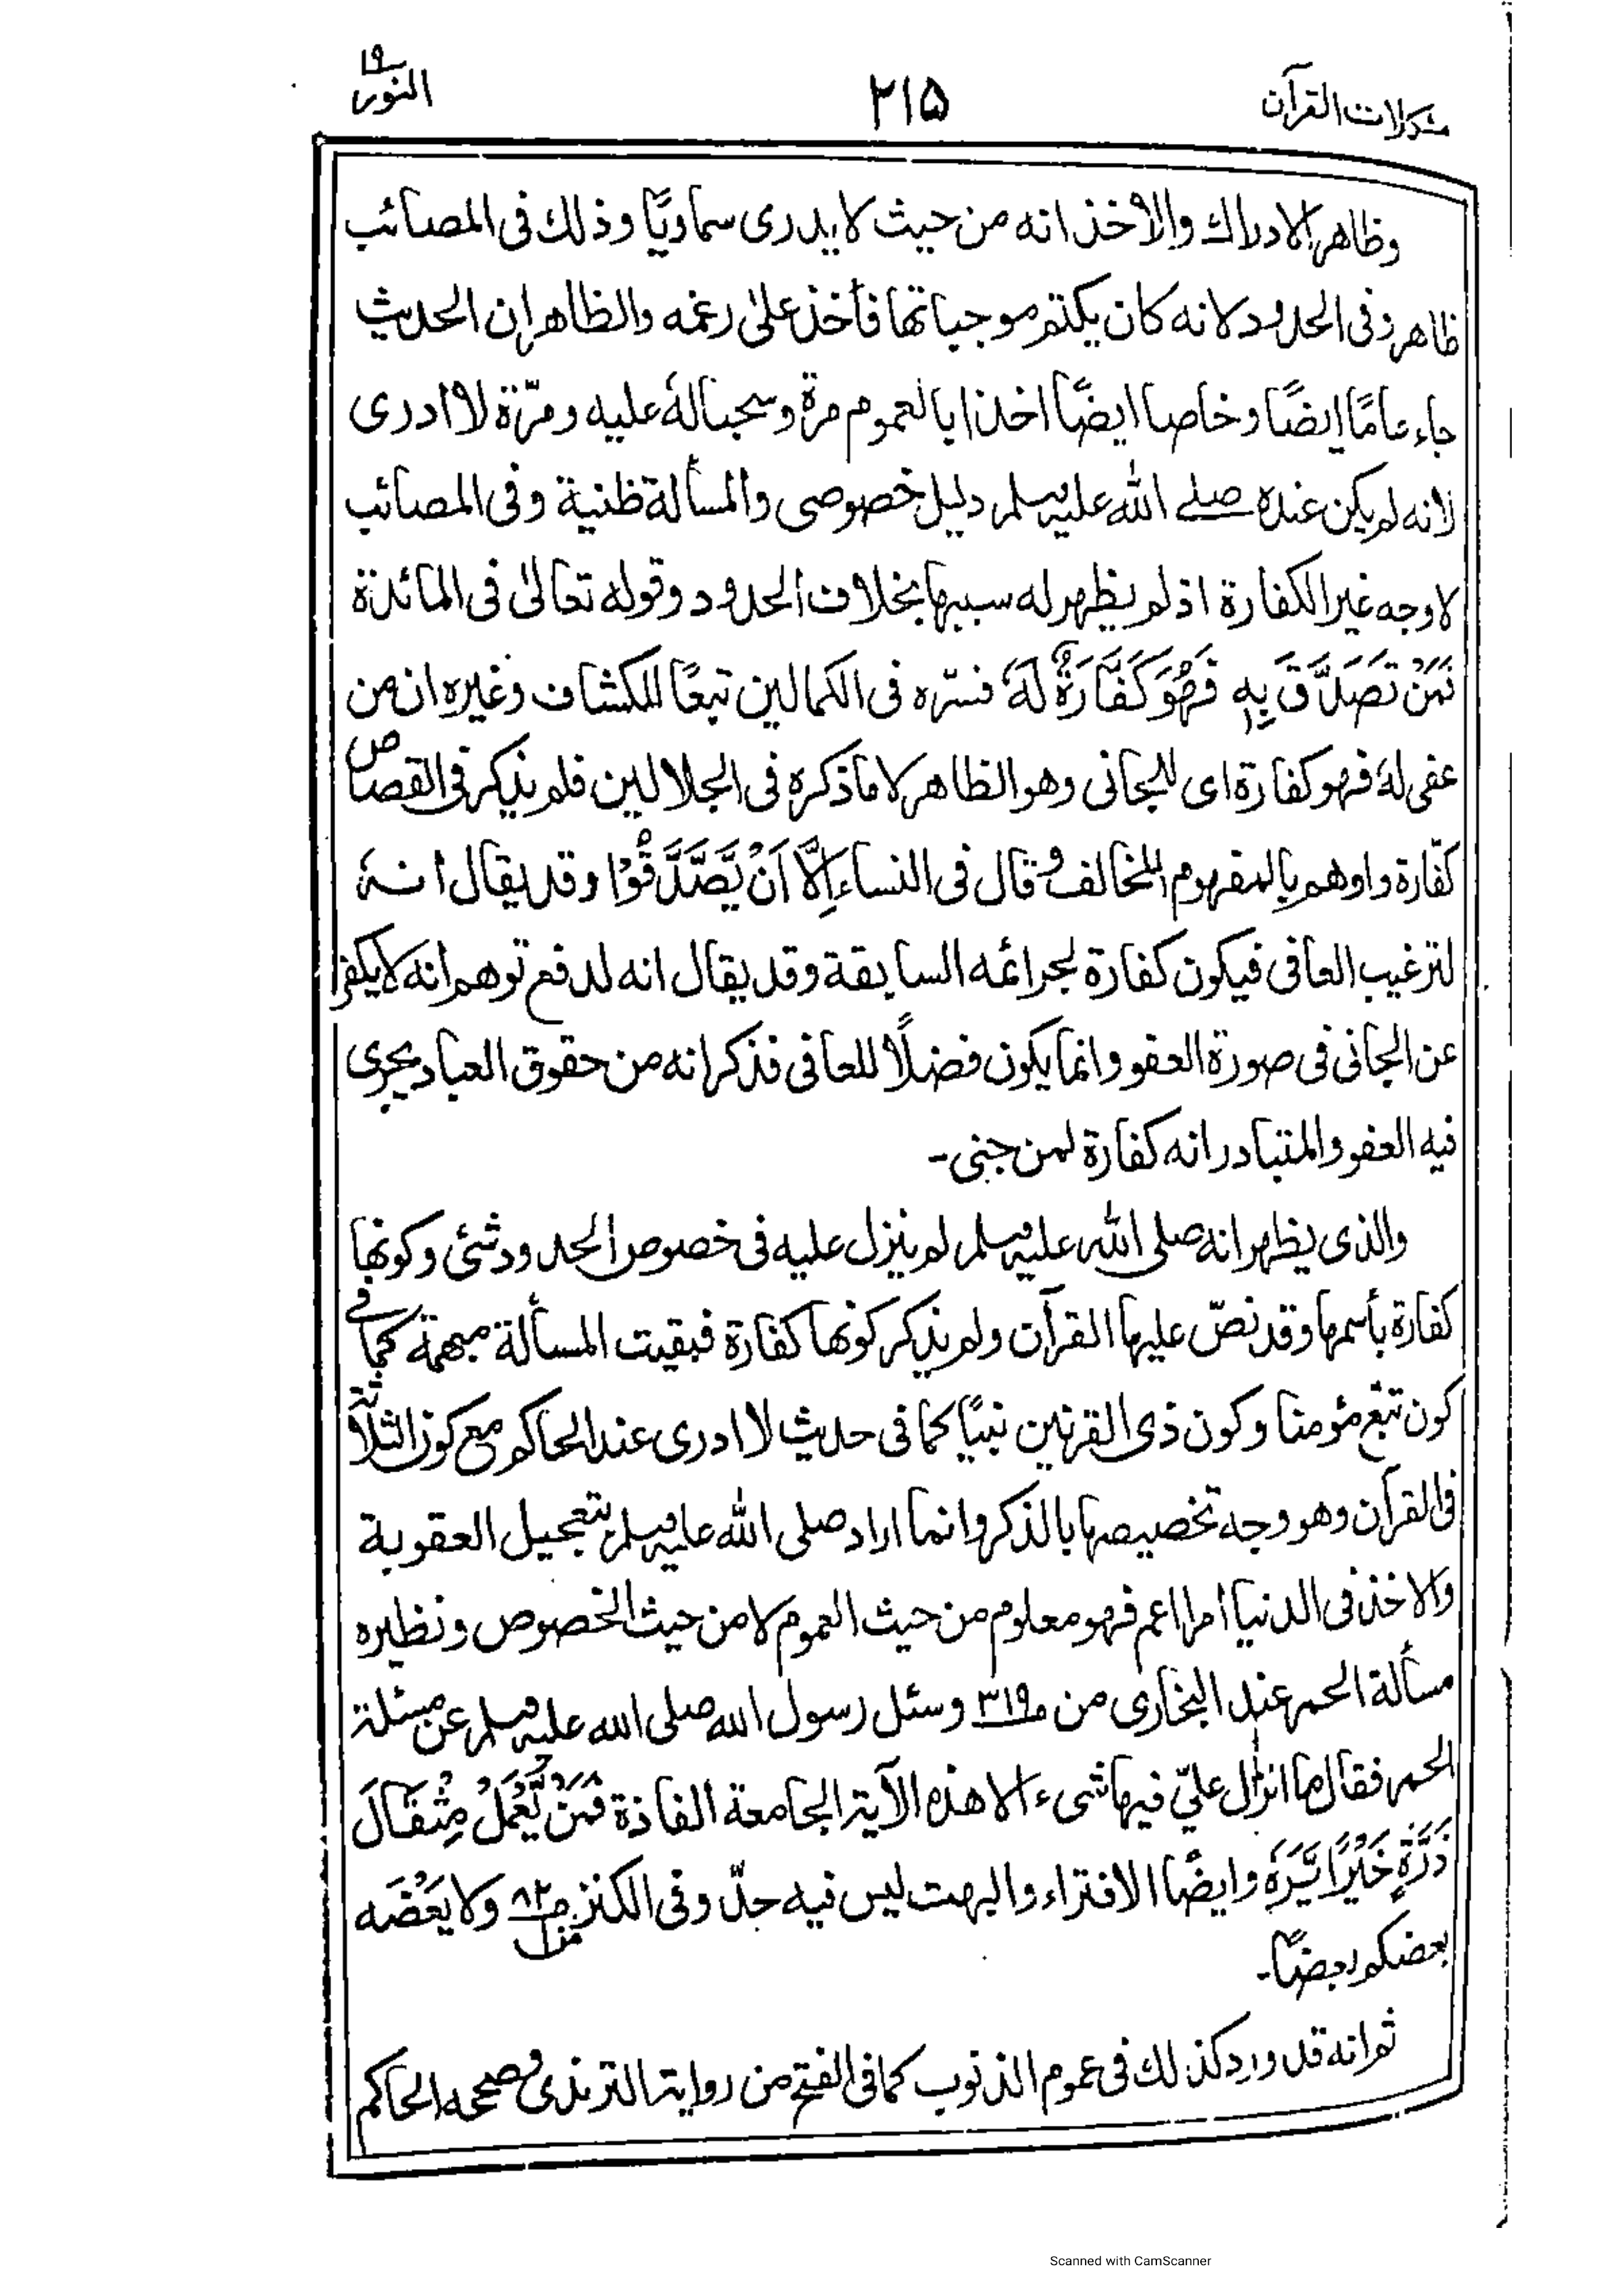 مشكلات القرآن ٢١٥ النور ١٩
وظاهر الادراك والاخذ انه من حيث لا يدرى سماويًّا وذلك فى المصائب
ظاهر وفى الحدود لانه كان يكتم موجباتها فأخذ علىٰ رغمه والظاهر ان الحديث
جاء عامًا ايضًا وخاصا ايضًا اخذا بالعموم مرة وسحبا لهٗ عليه ومرّة لا ادرى
لانه لم يكن عنده صلے الله عليه وسلم دليل خصوصى والمسألة ظنية وفى المصائب
لا وجه غير الكفارة اذ لم يظهر له سببها بخلاف الحدود وقوله تعالىٰ فى المائدة
فَمَنْ تَصَدَّقَ بِهٖ فَهُوَ كَفَّارَةٌ لَهٗ فسّره فى الكمالين تبعًا للكشاف وغيره ان من
عفى لهٗ فهو كفارة اى للجانى وهو الظاهر لا ما ذكره فى الجلالين فلم يذكر فى القصاص
كفّارة واوهم بالمفهوم المخالف وقال فى النساء اِلَّا اَنْ يَّصَّدَّقُوْا وقد يقال انهٗ
لترغيب العافى فيكون كفارة لجرائمه السابقة وقد يقال انه لدفع توهم انه لا يكفر
عن الجانى فى صورة العفو وانما يكون فضلًا للعافى فذكر انه من حقوق العباد يجرى
فيه العفو والمتبادر انه كفارة لمن جنى-
والذى يظهر انه صلى الله عليه وسلم لم ينزل عليه فى خصوص الحدود شئ وكونها
كفارة بأسمها وقد نصّ عليها القرآن ولم يذكر كونها كفارة فبقيت المسألة مبهمة كما فى
كون تبّع مؤمنا وكون ذى القرنين نبيًا كما فى حديث لا ادرى عند الحاكم مع كون الثلاثة
فى القرآن وهو وجه تخصيصها بالذكر وانما اراد صلى الله عليه وسلم بتعجيل العقوبة
والاخذ فى الدنيا امرا اعم فهو معلوم من حيث العموم لا من حيث الخصوص ونظيره
مسألة الحمر عند البخارى من ص٣١٩ وسئل رسول الله صلى الله عليه وسلم عن مسئلة
الحمر فقال ما انزل علىّ فيها شىء الا هذه الآية الجامعة الفاذة فَمَنْ يَّعْمَلْ مِثْقَالَ
ذَرَّةٍ خَيْرًا يَّرَهٗ وايضًا الافتراء والبهت ليس فيه حدّ وفى الكنز ص٨٢ ولا يَعْضَه
بعضكم بعضًا-
ثم انه قد ورد كذلك فى عموم الذنوب كما فى الفتح من رواية الترمذى وصححه الحاكم
Scanned with CamScanner